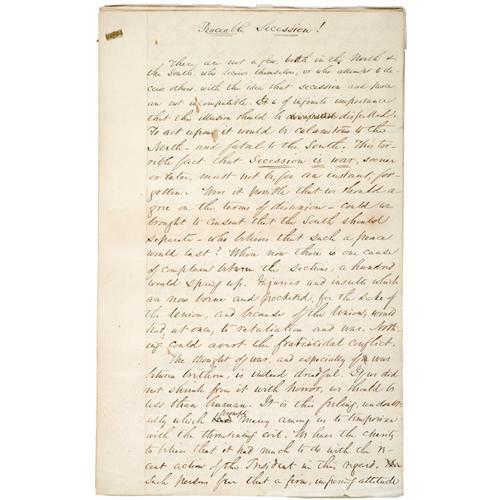 Peaceable Secession!
There are not a few, both in the North &
the South, who deceive themselves, or who attempt to de-
ceive others, with the idea that secession and peace
are not incompatible. It is of infinite importance
that this illusion should be dispelled.
To act upon it would be calamitous to the
North and fatal to the South. This ter-
rible fact that Secession is war, sooner
or later, must not be, for an instant, for-
gotten. Were it possible that we should a-
gree on the terms of disunion - could we
brought to consent that the South should
separate - who believes that such a peace
would last? Where now there is one cause
of complaint between the sections, a hundred
would spring up. Injuries and insults which
are now borne and pocketed, for the sake of
the Union, and because of the Union, would
lead at once, to retaliation and war. Noth-
ing could avert the fratricidal conflict.
The thought of war, and especially of a war
between brethren, is indeed dreadful. If we did
not shrink from it with horror, we should be
less than human. It is this feeling, undoubt-
edly which prompts many among us to temporize
with the threatening evil. We have the charity
to believe that it had much to do with the re-
cent action of the President in this regard.
Such persons fear that a firm, imposing attitude